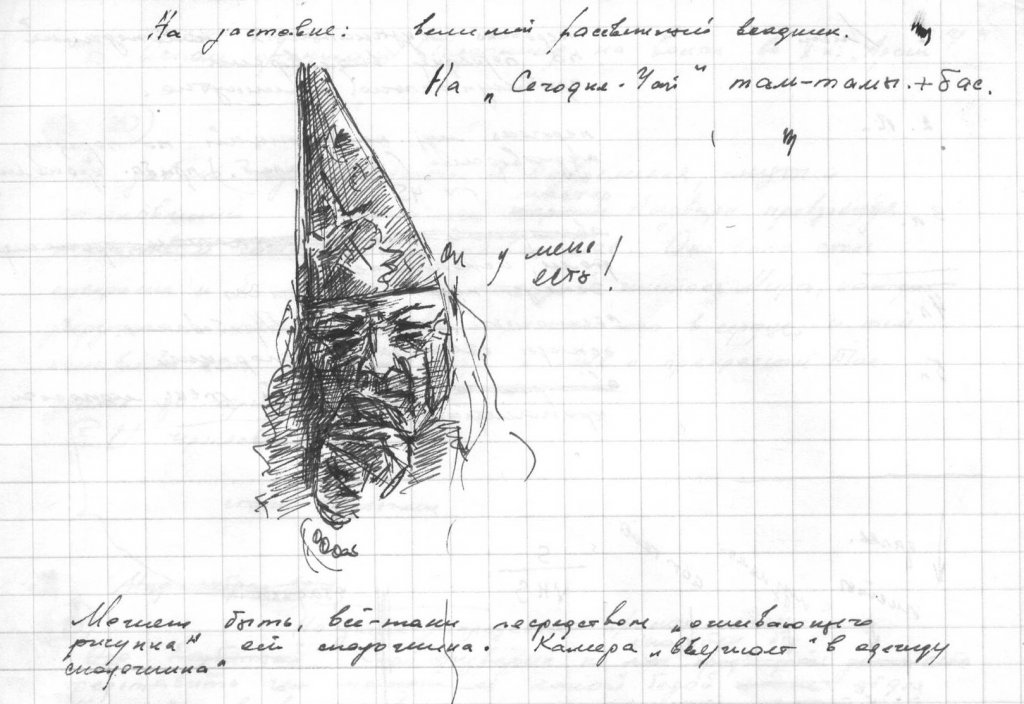 На заставке: великий всадник.
На „Сегодня- там-тамы.+бас.
Он у меня
есть!
Может быть, всё-таки посредством „оживающего
рисунка" сказочника. Камера „въезжает" в одежду
сказочника"